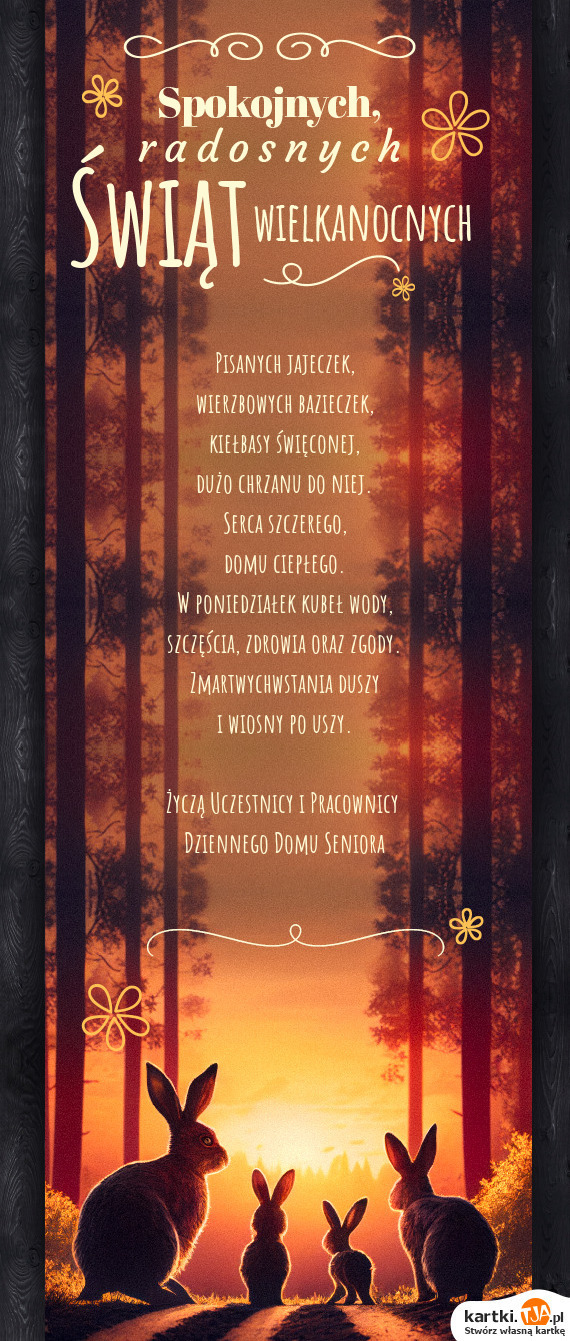 Spokojnych,
radosnych
Świąt wielkanocnych
Pisanych jajeczek,
wierzbowych bazieczek,
kiełbasy święconej,
dużo chrzanu do niej.
Serca szczerego,
domu ciepłego.
W poniedziałek kubeł wody,
szczęścia, zdrowia oraz zgody.
Zmartwychwstania duszy
i wiosny po uszy.
Życzą Uczestnicy i Pracownicy
Dziennego Domu Seniora
kartki.TJA.pl
Stwórz własną kartkę